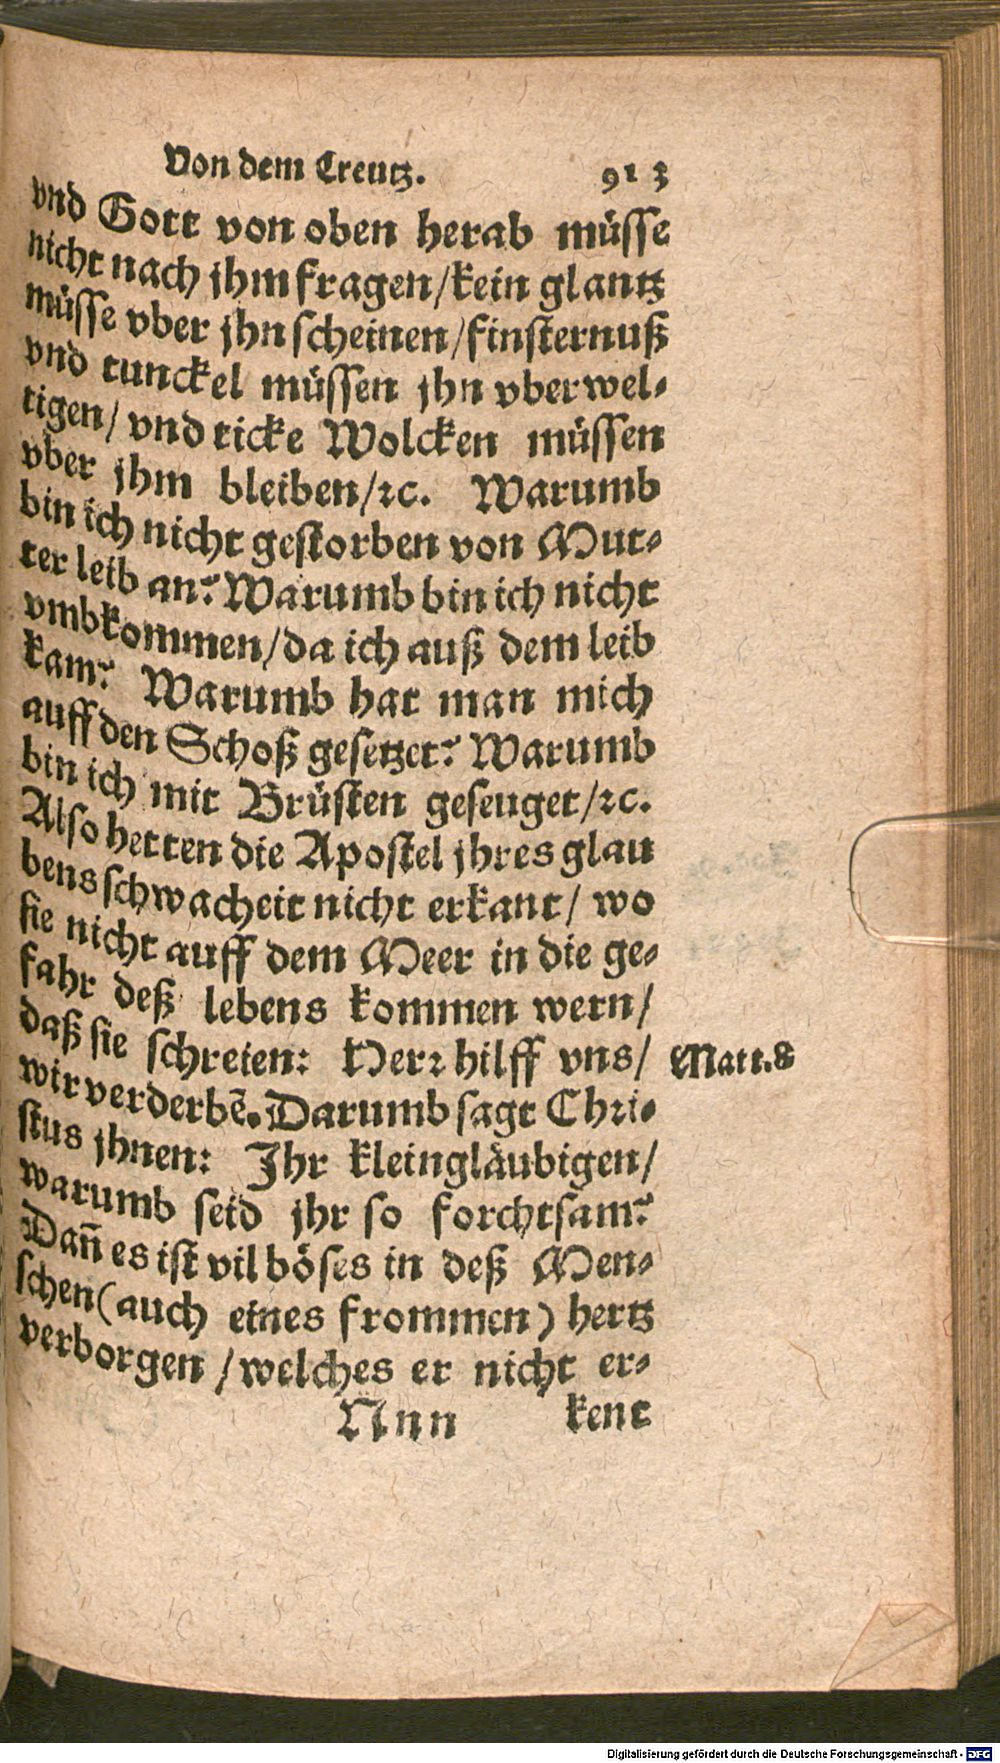 Von dem Creutz. 913
vnd Gott von oben herab müsse
nicht nach jhm fragen/kein glantz
müsse vber jhn scheinen/finsternuß
vnd tunckel müssen jhn vberwel-
tigen/ vnd ticke Wolcken müssen
vber jhm bleiben/ꝛc. Warumb
bin ich nicht gestorben von Mut-
ter leib an? Warumb bin ich nicht
vmbkommen/da ich auß dem leib
kam? Warumb hat man mich
auff den Schoß gesetzet? Warumb
bin ich mit Brüsten geseuget/ꝛc.
Also hetten die Apostel jhres glau
bens schwacheit nicht erkant/ wo
sie nicht auff dem Meer in die ge-
fahr deß lebens kommen wern/
daß sie schreien: Herꝛ hilff vns/ Matt.8
wir verderbẽ. Darumb sagt Chri-
stus jhnen: Jhr kleingläubigen/
warumb seid jhr so forchtsam?
Dañ es ist vil böses in deß Men-
schen (auch eines frommen) hertz
verborgen/welches er nicht er-
Nnn kent
Digitalisierung gefördert durch die Deutsche Forschungsgemeinschaft - DFG